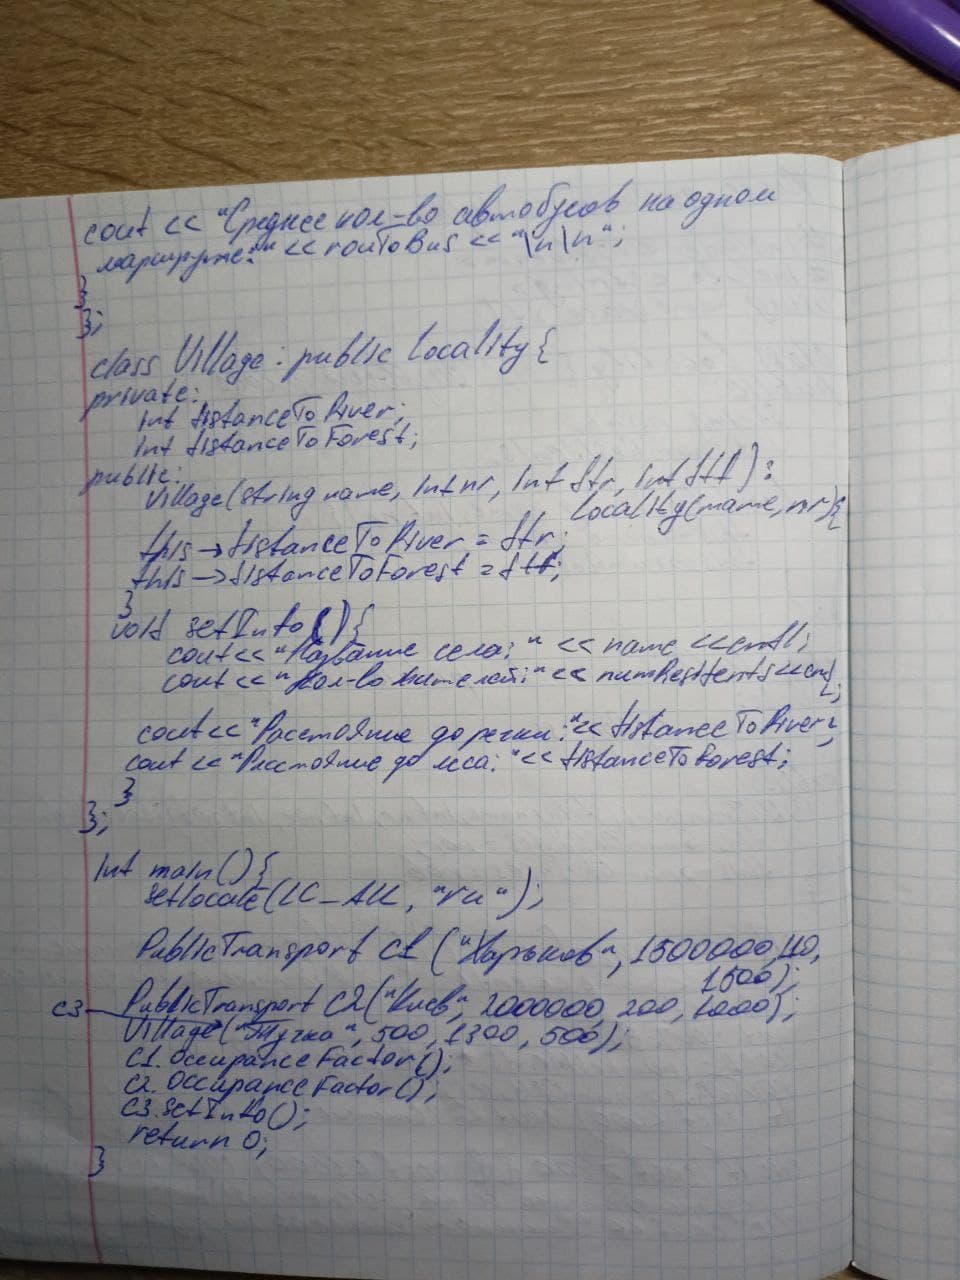 cout << "Среднее кол-во автобусов на одном
маршруте:" << rouToBus << "\n\n";
}
};
class Village: public Locality{
private:
int distanceToRiver;
int distanceToForest;
public:
Village(string name, int nr, int dtr, int dtf):
Locality(name, nr){
this->distanceToRiver = dtr;
this->distanceToForest = dtf;
}
void setInfo(){
cout << "Название села: " << name << endl;
cout << "Кол-во жителей: " << numResidents << endl;
cout << "Расстояние до речки: " << distanceToRiver;
cout << "Расстояние до леса: " << distanceToForest;
}
};
int main(){
setlocale(LC_ALL, "ru");
PublicTransport c1 ("Харьков", 1500000, 40,
1500);
PublicTransport c2("Киев", 2000000, 200, 1000);
c3
Village("Тучка", 500, 1300, 500);
c1.OccupanceFactor();
c2.OccupanceFactor();
c3.setInfo();
return 0;
}